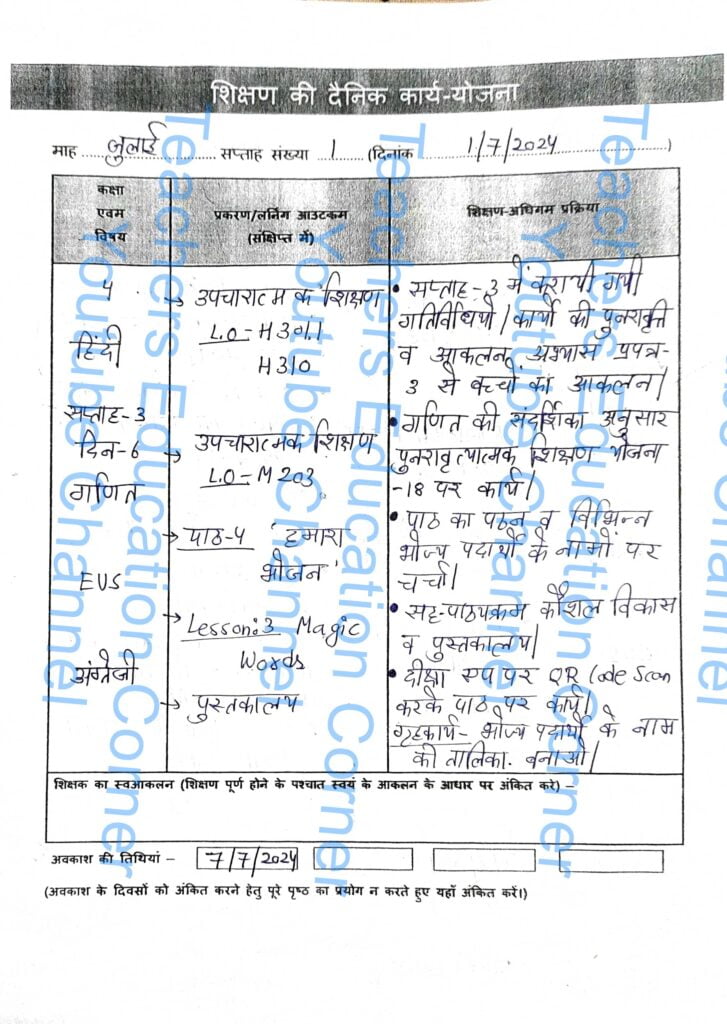 शिक्षण की दैनिक कार्य-योजना
माह .... जुलाई .... सप्ताह संख्या ..1.. (दिनांक .... 1/7/2024 ....)
कक्षा
एवम
विषय
प्रकरण/लर्निंग आउटकम
(संक्षिप्त में)
शिक्षण-अधिगम प्रक्रिया
4
हिंदी
सप्ताह-3
दिन-6
गणित
EVS
अंग्रेजी
→ उपचारात्मक शिक्षण
L.O-H301.1
H310
→ उपचारात्मक शिक्षण
L.O-M203
→ पाठ-4 'हमारा
भोजन'
→ Lesson:3 Magic
Words
→ पुस्तकालय
• सप्ताह-3 में करायी गयी
गतिविधियों/कार्यों की पुनरावृत्ति
व आकलन, अभ्यास प्रपत्र-
3 से बच्चों का आकलन।
• गणित की संदर्शिका अनुसार
पुनरावृत्यात्मक शिक्षण योजना
-18 पर कार्य।
• पाठ का पठन व विभिन्न
भोज्य पदार्थों के नामों पर
चर्चा।
• सह-पाठ्यक्रम कौशल विकास
व पुस्तकालय।
• दीक्षा एप पर QR Code Scan
करके पाठ पर कार्य।
गृहकार्य- भोज्य पदार्थों के नाम
की तालिका. बनाओ।
शिक्षक का स्वआकलन (शिक्षण पूर्ण होने के पश्चात स्वयं के आकलन के आधार पर अंकित करे) –
अवकाश की तिथियां – 7/7/2024
(अवकाश के दिवसों को अंकित करने हेतु पूरे पृष्ठ का प्रयोग न करते हुए यहाँ अंकित करें।)
Teachers Education Corner
Youtube Channel
Teachers Education Corner
Youtube Channel